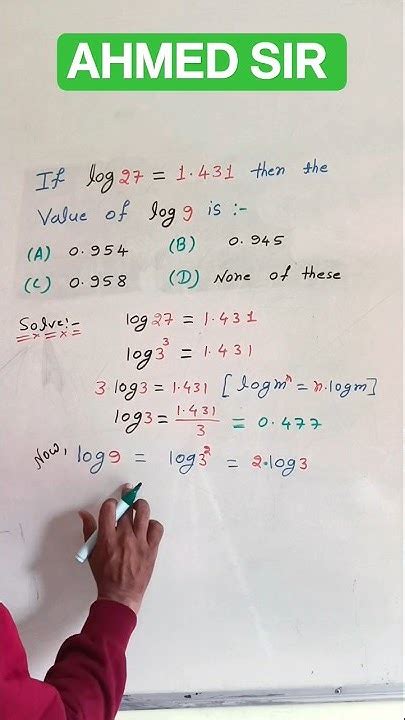 AHMED SIR
If log 27 = 1.431 then the
Value of log 9 is :-
(A) 0.954 (B) 0.945
(C) 0.958 (D) None of these
Solve:- log 27 = 1.431
log 3³ = 1.431
3·log 3 = 1.431 [logmⁿ = n·logm]
log 3 = 1.431/3 = 0.477
Now, log 9 = log 3² = 2·log 3